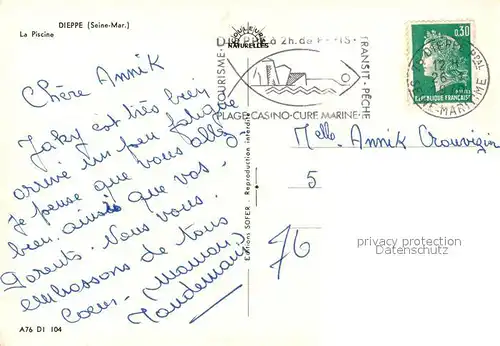 DIEPPE (Seine-Mar.)
La Piscine
COULEURS
NATURELLES
Chère Annik
Jaky est très bien
arrivé un peu fatigué
Je pense que vous allez
bien. ainsi que vos
Parents. Nous vous.
embrassons de tous
Coeur. Maman
A76 DI 104
Editions SOFER - Reproduction interdite
DIEPPE à 2h. de PARIS
TOURISME
TRANSIT - PÊCHE
PLAGE-CASINO-CURE MARINE
0,30
REPUBLIQUE FRANÇAISE
DIEPPE PPAL
SEINE-MARITIME
Melle Annik Crouvizin
5
76
privacy protection
watermark